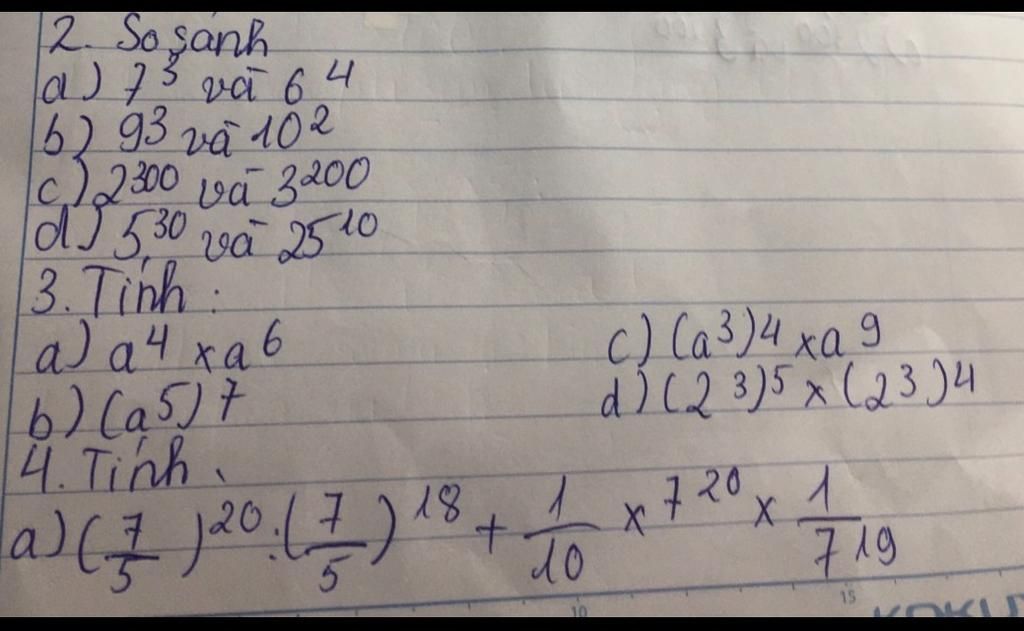 2. So sánh
a) 7³ và 6⁴
b) 9³ và 10²
c) 2³⁰⁰ và 3²⁰⁰
d) 5³⁰ và 25¹⁰
3. Tính :
a) a⁴ x a⁶
b) (a⁵)⁷
c) (a³)⁴ x a⁹
d) (2³)⁵ x (2³)⁴
4. Tính
a) (7/5)²⁰ : (7/5)¹⁸ + 1/10 x 7²⁰ x 1/7¹⁹
10 15